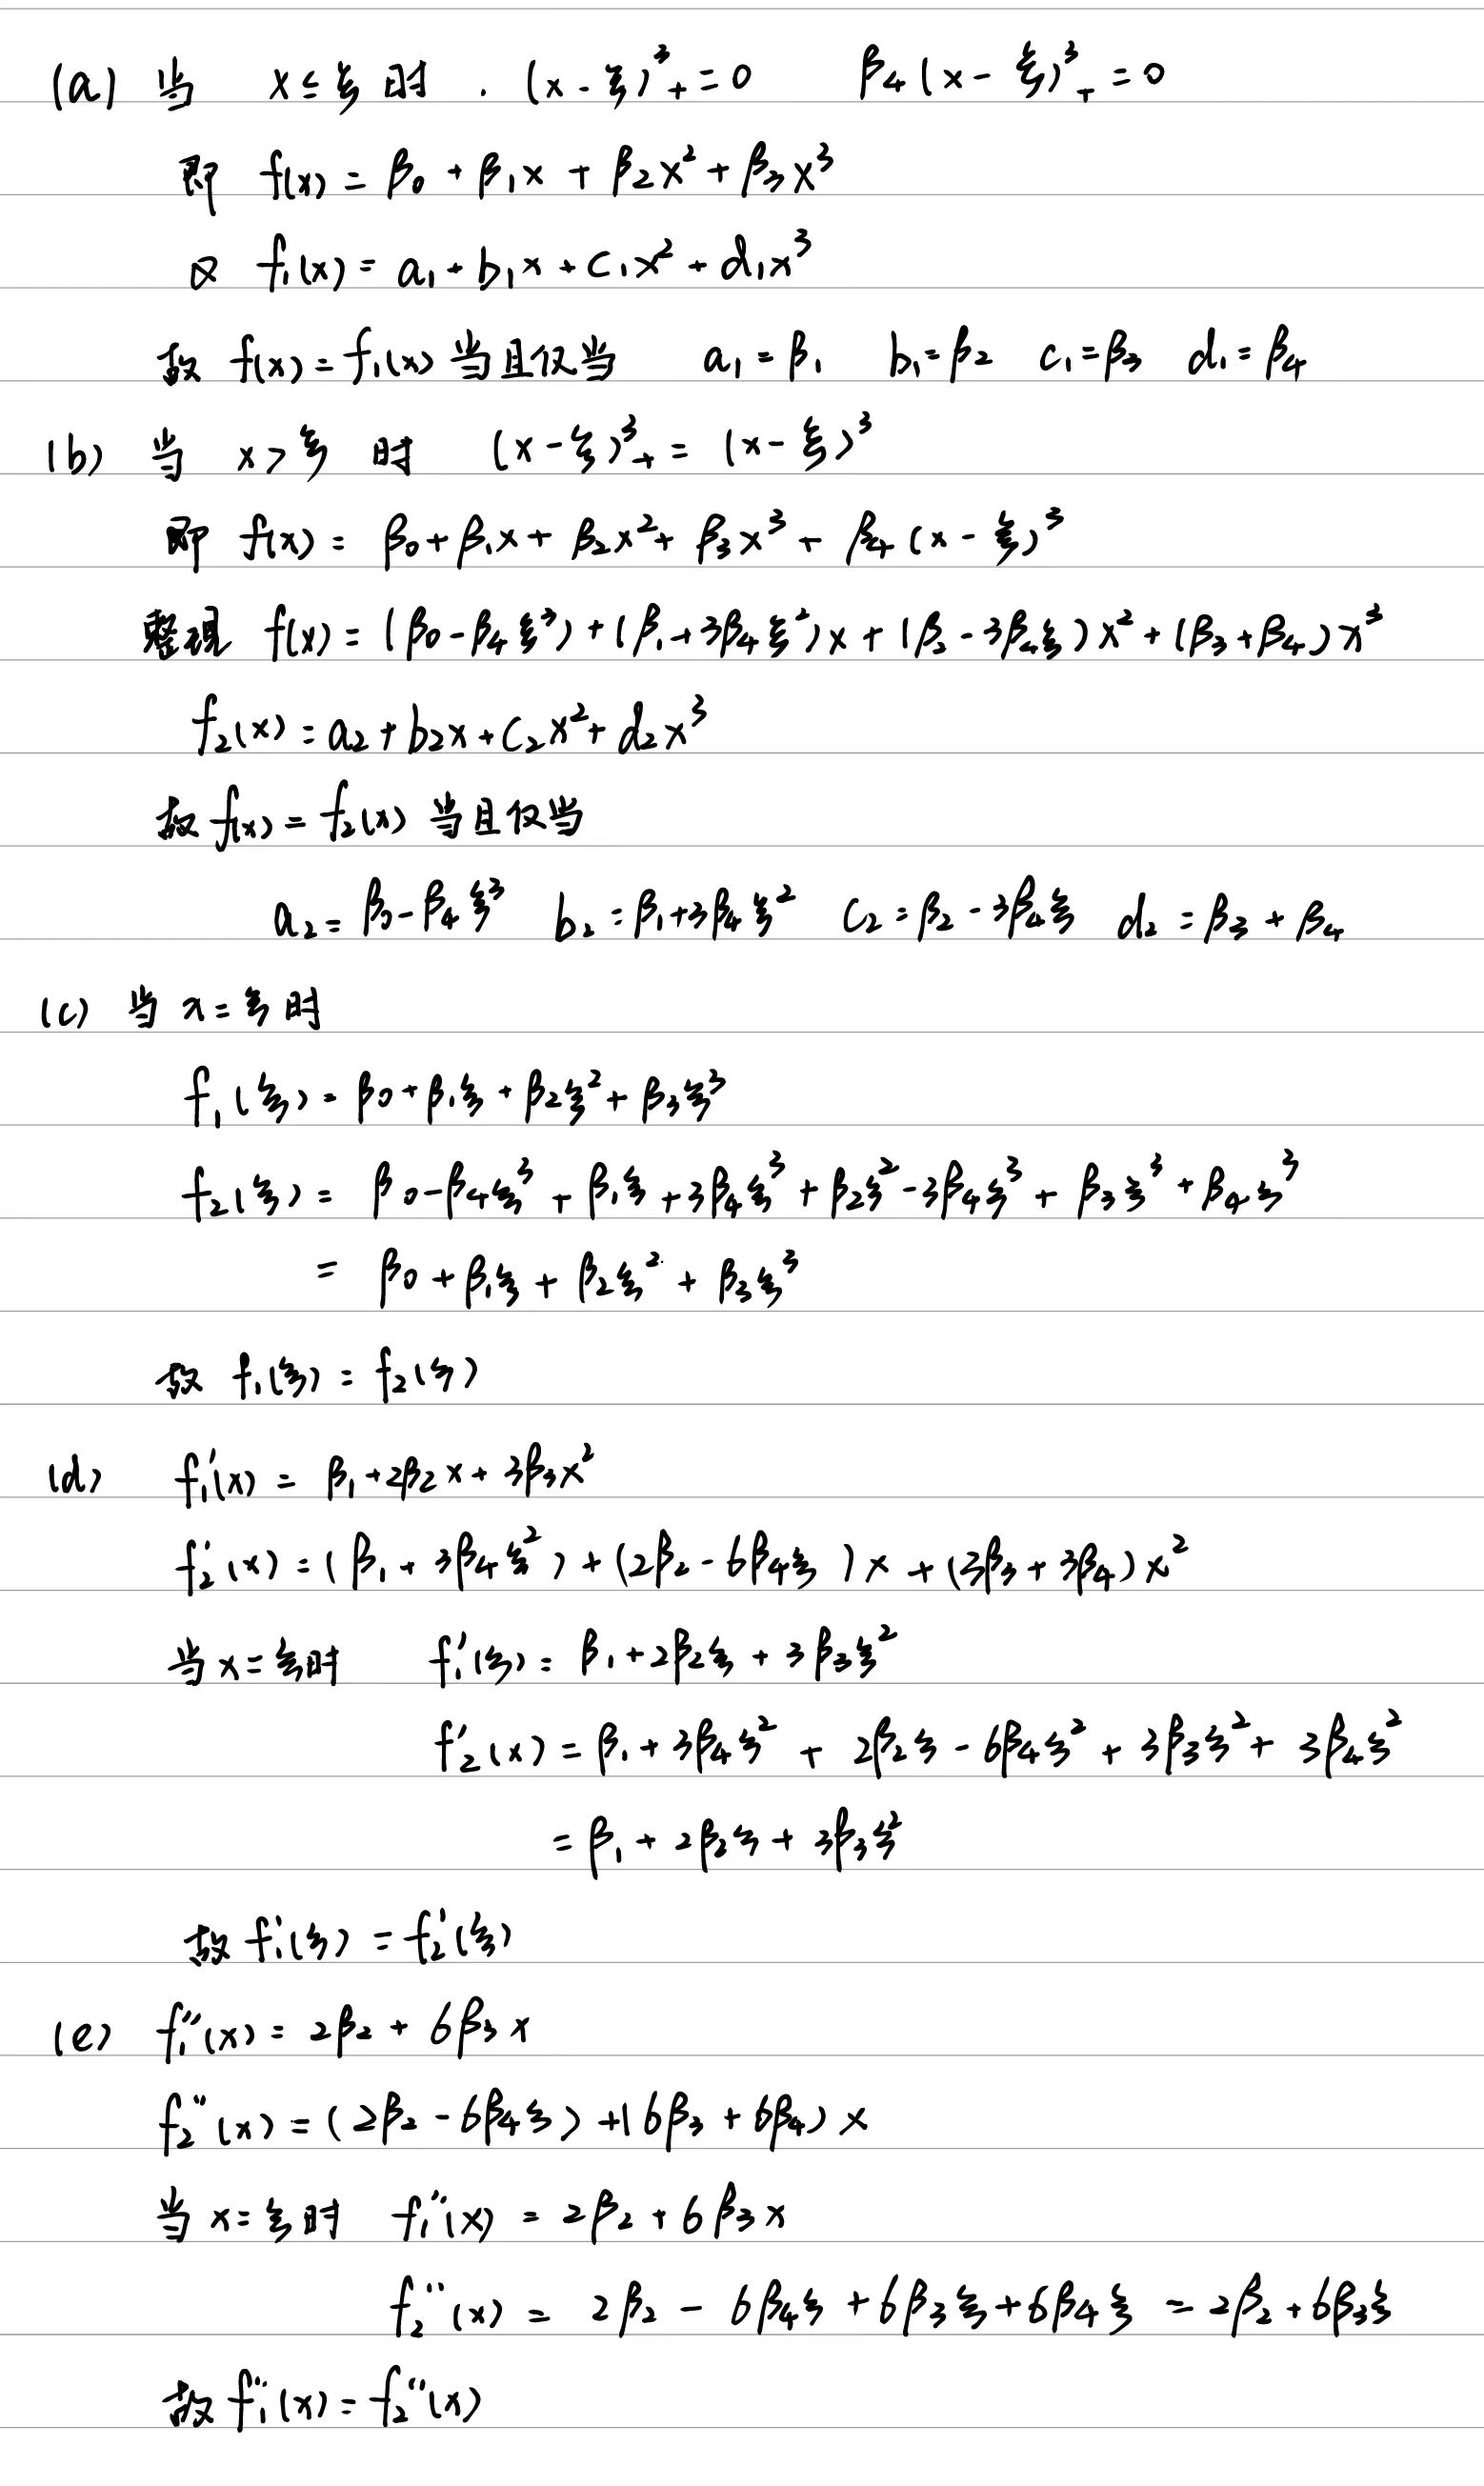 (a) 当 x≤ξ 时 . (x-ξ)³₊=0 β₄(x-ξ)³₊=0
即 f(x) = β₀ + β₁x + β₂x² + β₃x³
又 f₁(x) = a₁ + b₁x + c₁x² + d₁x³
故 f(x) = f₁(x) 当且仅当 a₁=β₁ b₁=β₂ c₁=β₃ d₁=β₄
(b) 当 x>ξ 时 (x-ξ)³₊ = (x-ξ)³
即 f(x) = β₀+β₁x+β₂x²+β₃x³+β₄(x-ξ)³
整理 f(x) = (β₀-β₄ξ³)+(β₁+3β₄ξ²)x+(β₂-3β₄ξ)x²+(β₃+β₄)x³
f₂(x) = a₂+b₂x+c₂x²+d₂x³
故 f(x) = f₂(x) 当且仅当
a₂=β₀-β₄ξ³ b₂=β₁+3β₄ξ² c₂=β₂-3β₄ξ d₂=β₃+β₄
(c) 当 x=ξ 时
f₁(ξ) = β₀+β₁ξ+β₂ξ²+β₃ξ³
f₂(ξ) = β₀-β₄ξ³+β₁ξ+3β₄ξ³+β₂ξ²-3β₄ξ³+β₃ξ³+β₄ξ³
= β₀+β₁ξ+β₂ξ²+β₃ξ³
故 f₁(ξ) = f₂(ξ)
(d) f₁'(x) = β₁+2β₂x+3β₃x²
f₂'(x) = (β₁+3β₄ξ²)+(2β₂-6β₄ξ)x+(3β₃+3β₄)x²
当 x=ξ时 f₁'(ξ) = β₁+2β₂ξ+3β₃ξ²
f₂'(x) = β₁+3β₄ξ²+2β₂ξ-6β₄ξ²+3β₃ξ²+3β₄ξ²
= β₁+2β₂ξ+3β₃ξ²
故 f₁'(ξ) = f₂'(ξ)
(e) f₁''(x) = 2β₂+6β₃x
f₂''(x) = (2β₂-6β₄ξ)+(6β₃+6β₄)x
当 x=ξ时 f₁''(x) = 2β₂+6β₃x
f₂''(x) = 2β₂-6β₄ξ+6β₃ξ+6β₄ξ = 2β₂+6β₃ξ
故 f₁''(x) = f₂''(x)